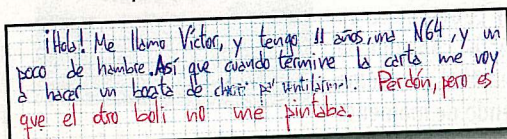 ¡Hola! Me llamo Víctor, y tengo 11 años, una N64, y un
poco de hambre. Así que cuando termine la carta me voy
a hacer un bocata de chori' pa' untilármel. Perdón, pero es
que el otro boli no me pintaba.